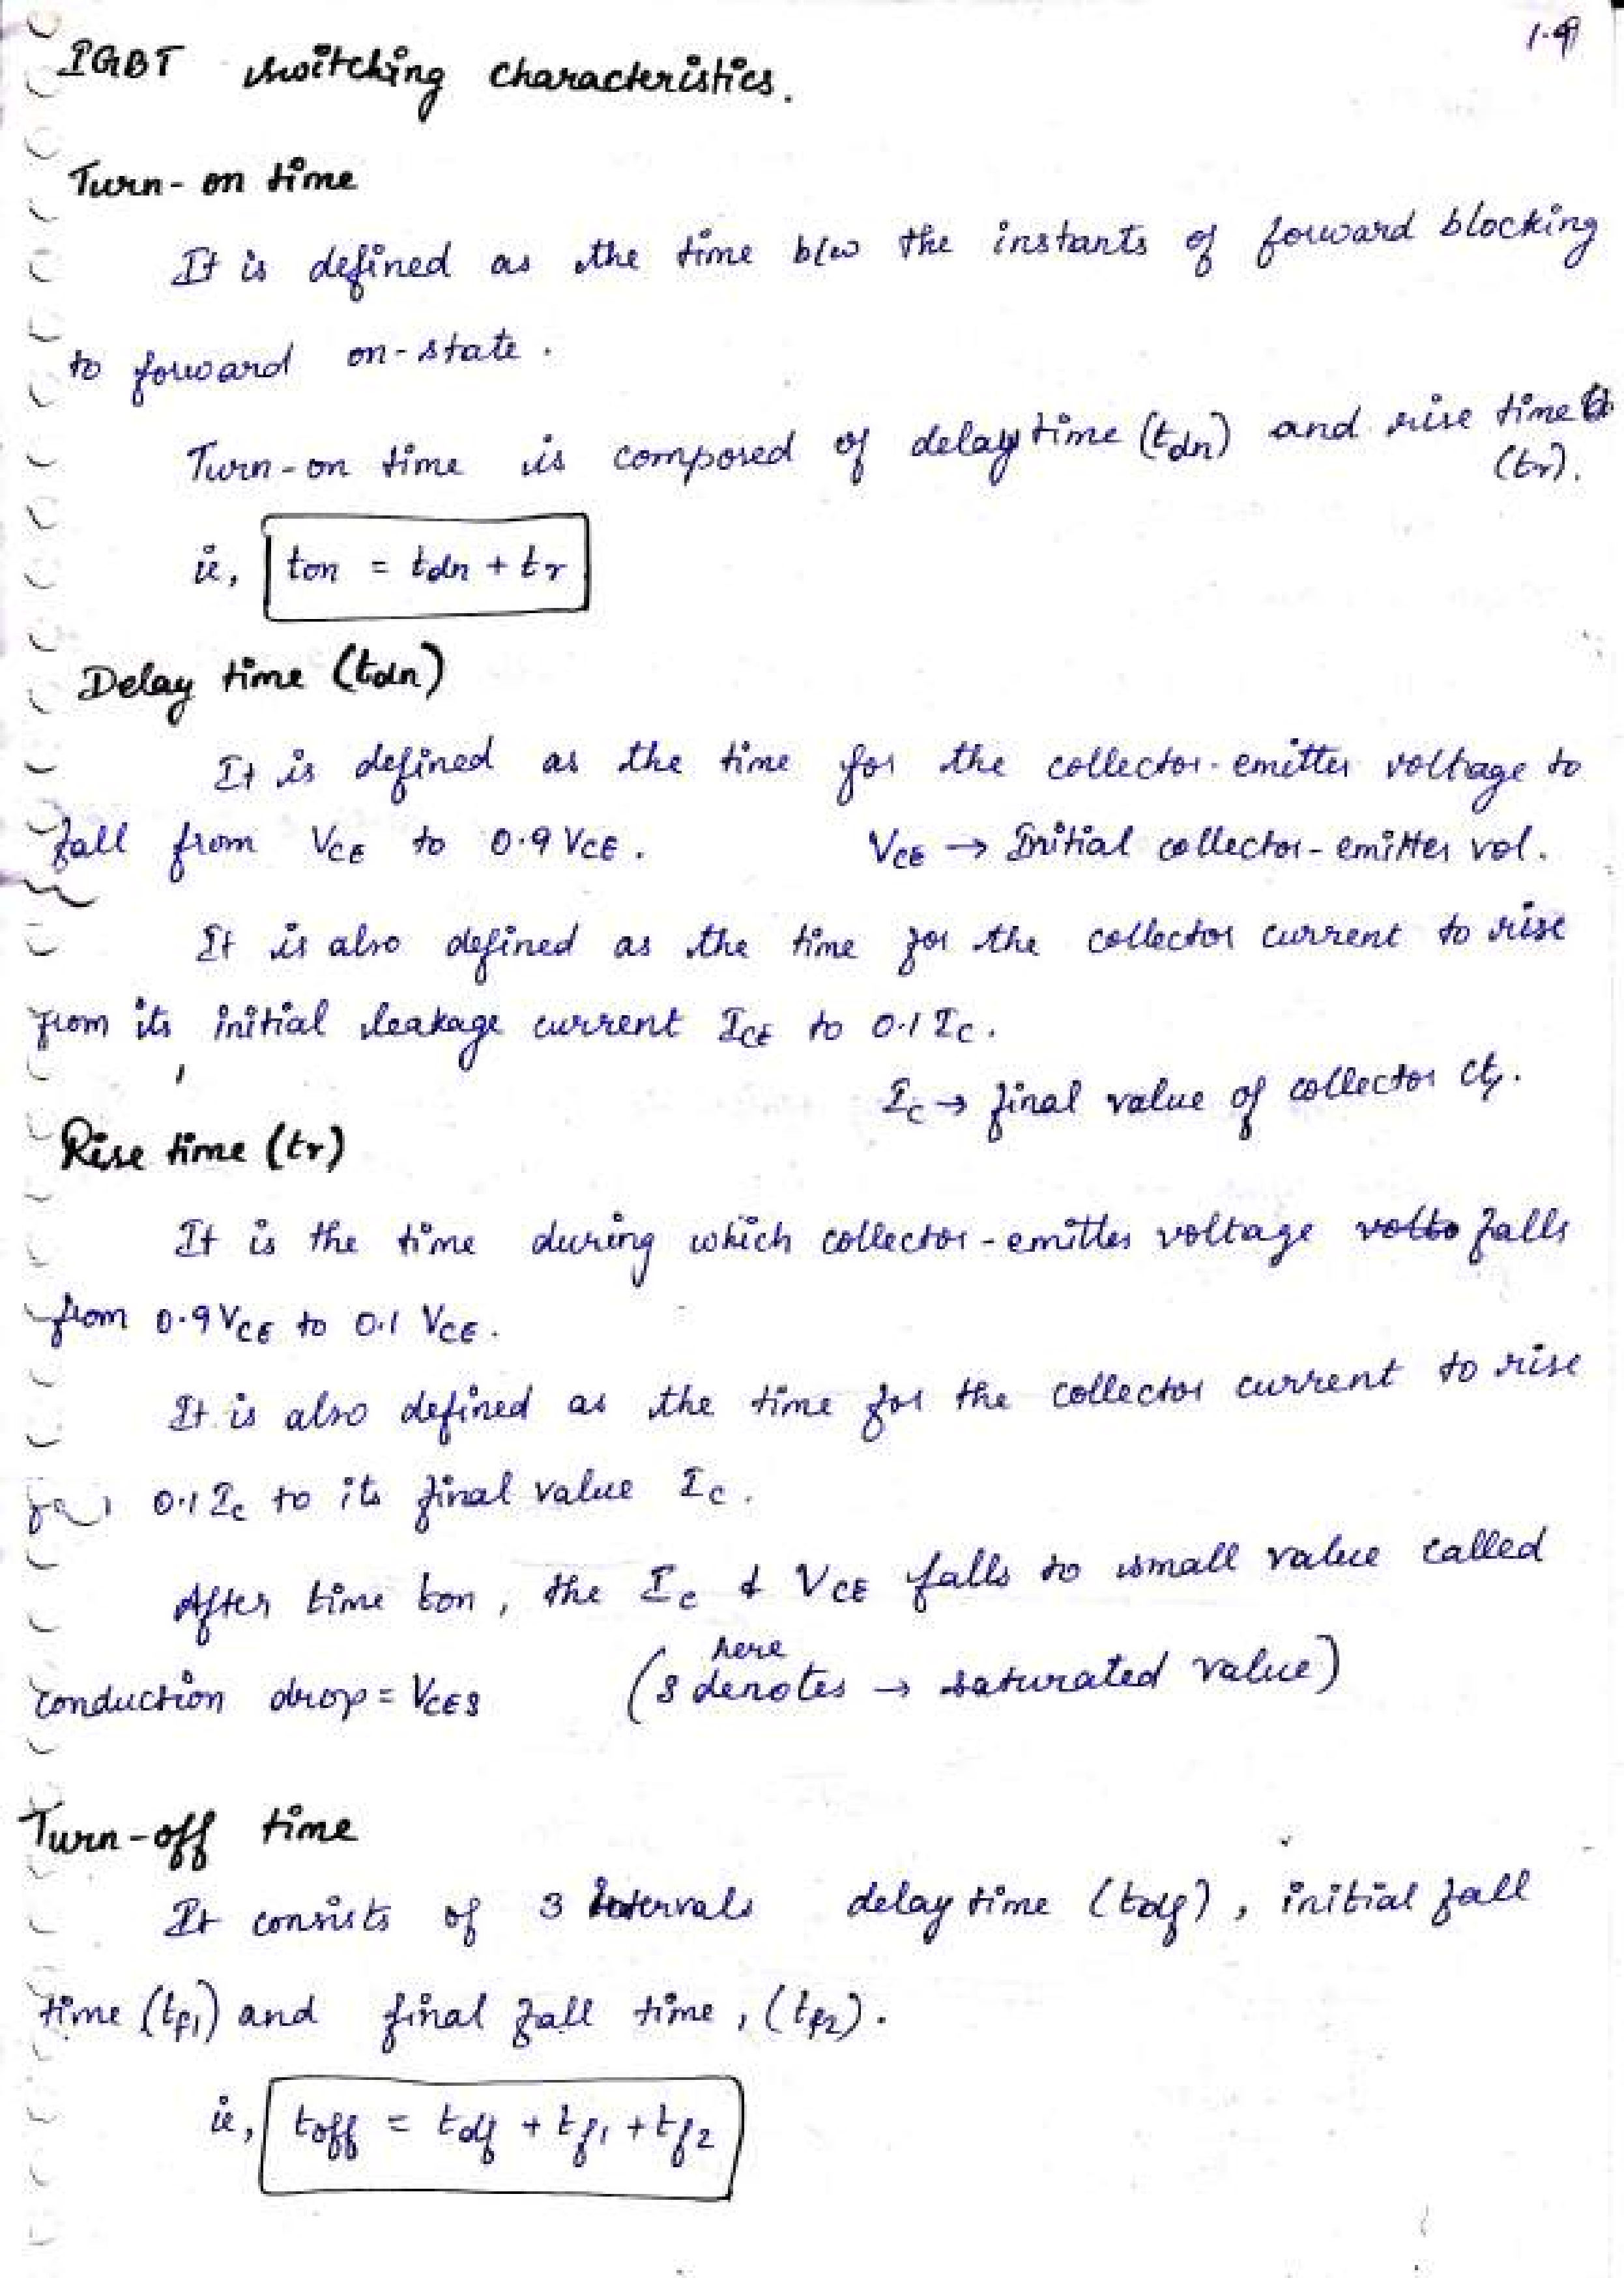 1.9
IGBT switching characteristics.
Turn-on time
It is defined as the time b/w the instants of forward blocking
to forward on-state.
Turn-on time is composed of delay time (tdn) and rise time
(tr).
ie, ton = tdn + tr
Delay time (tdn)
It is defined as the time for the collector-emitter voltage to
fall from VCE to 0.9 VCE. VCE → Initial collector-emitter vol.
It is also defined as the time for the collector current to rise
from its initial leakage current ICE to 0.1 IC.
IC → final value of collector ct.
Rise time (tr)
It is the time during which collector-emitter voltage falls
from 0.9 VCE to 0.1 VCE.
It is also defined as the time for the collector current to rise
0.1 Ic to its final value Ic.
After time ton, the Ic & VCE falls to small value called
here
conduction drop = VCES (S denotes → saturated value)
Turn-off time
It consists of 3 intervals delay time (tdf), initial fall
time (tf1) and final fall time, (tf2).
ie, toff = tdf + tf1 + tf2